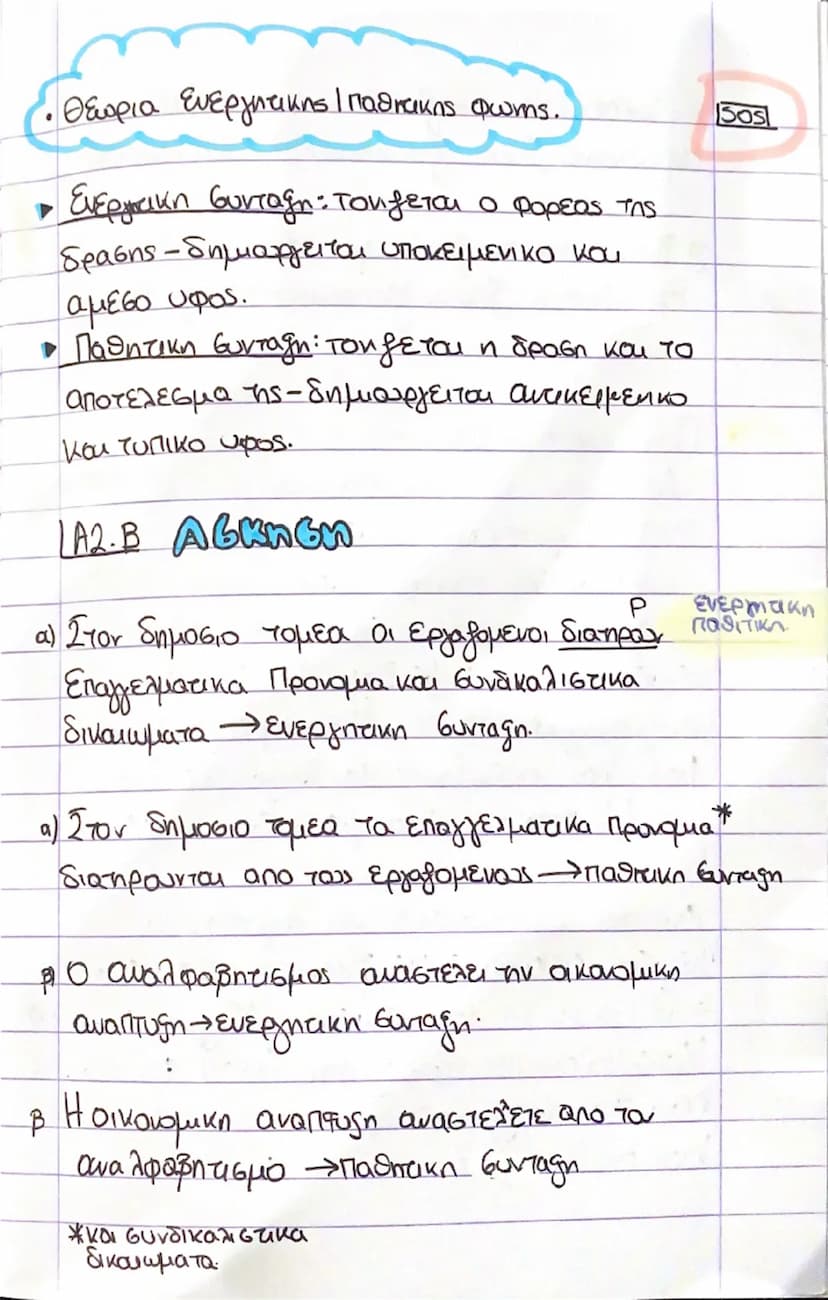 • Θεωρια Ενεργητικης/παθητικης φωνης.
SOS
Ενεργητικη συνταξη: τονιζεται ο φορεας της
δρασης – δημιουργειται υποκειμενικο και
αμεσο υφος.
Παθητικη συνταξη: τονιζεται η δραση και το
αποτελεσμα της – δημιουργειται αντικειμενικο
και τυπικο υφος.
Α2.Β Ασκηση
Ρ
ενεργητικη
παθιτικη
α) Στον δημοσιο τομεα οι εργαζομενοι διατηρουν
Επαγγελματικα Προνομια και συνδικαλιστικα
δικαιωματα → ενεργητικη συνταξη.
α) Στον δημοσιο τομεα τα επαγγελματικα προνομια*
διατηρουνται απο τους εργαζομενους → παθητικη συνταξη
β) Ο αναλφαβητισμος αναστελει την οικονομικη
αναπτυξη → ενεργητικη συνταξη.
:
β Η οικονομικη αναπτυξη αναστελετε απο τον
αναλφαβητισμο → παθητικη συνταξη
*και συνδικαλιστικα
δικαιωματα.